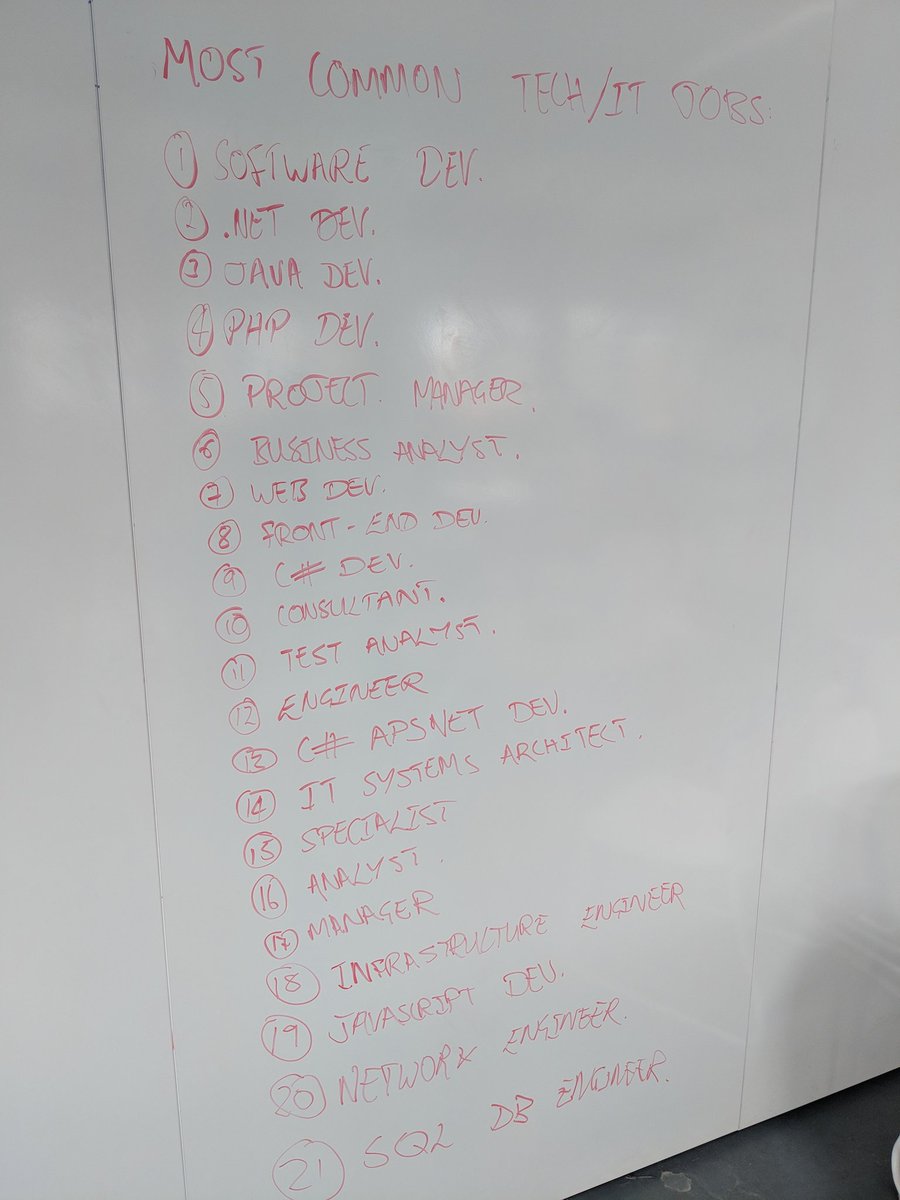 MOST COMMON TECH/IT JOBS:
1 SOFTWARE DEV.
2 .NET DEV.
3 JAVA DEV.
4 PHP DEV.
5 PROJECT. MANAGER.
6 BUSINESS ANALYST.
7 WEB DEV.
8 FRONT-END DEV.
9 C# DEV.
10 CONSULTANT.
11 TEST ANALYST.
12 ENGINEER
13 C# APSNET DEV.
14 IT SYSTEMS ARCHITECT.
15 SPECIALIST
16 ANALYST.
17 MANAGER
18 INFRASTRUCTURE ENGINEER
19 JAVASCRIPT DEV.
20 NETWORK ENGINEER.
21 SQL DB ENGINEER.